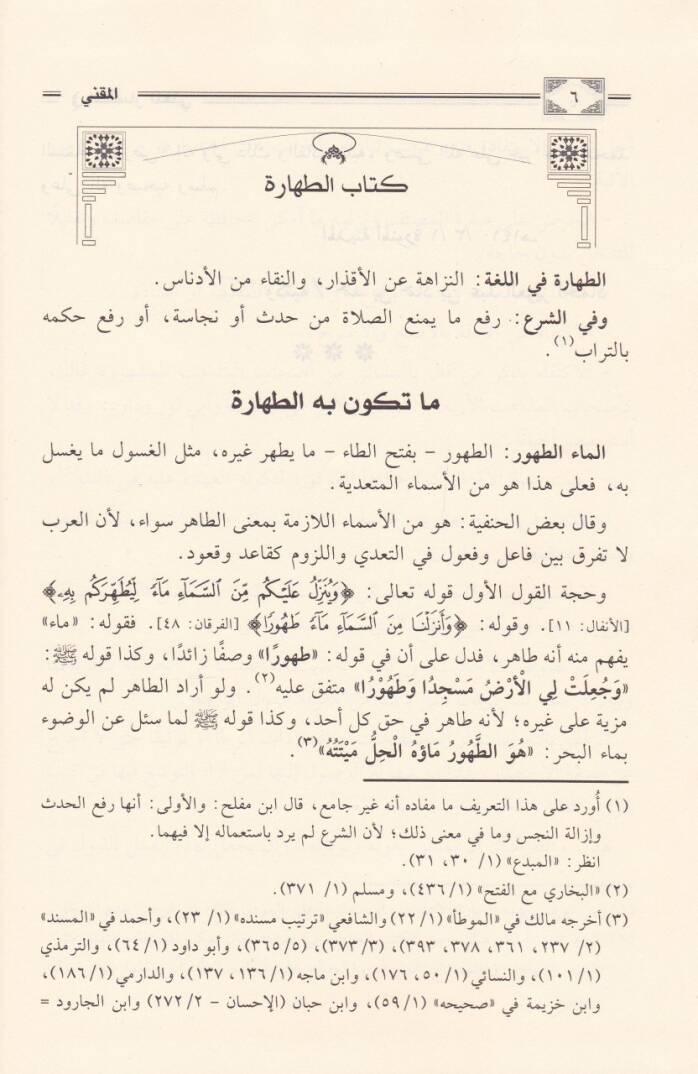 ٦
المقني
كتاب الطهارة
الطهارة في اللغة: النزاهة عن الأقذار، والنقاء من الأدناس.
وفي الشرع: رفع ما يمنع الصلاة من حدث أو نجاسة، أو رفع حكمه
بالتراب(١).
ما تكون به الطهارة
الماء الطهور: الطهور - بفتح الطاء - ما يطهر غيره، مثل الغسول ما يغسل
به، فعلى هذا هو من الأسماء المتعدية.
وقال بعض الحنفية: هو من الأسماء اللازمة بمعنى الطاهر سواء، لأن العرب
لا تفرق بين فاعل وفعول في التعدي واللزوم كقاعد وقعود.
وحجة القول الأول قوله تعالى: ﴿وَيُنَزِّلُ عَلَيْكُم مِّنَ ٱلسَّمَآءِ مَآءً لِّيُطَهِّرَكُم بِهِۦ﴾
[الأنفال: ١١]. وقوله: ﴿وَأَنزَلْنَا مِنَ ٱلسَّمَآءِ مَآءً طَهُورًا﴾ [الفرقان: ٤٨]. فقوله: «ماء»
يفهم منه أنه طاهر، فدل على أن في قوله: «طهورًا» وصفًا زائدًا، وكذا قوله ﷺ:
«وَجُعِلَتْ لِي الْأَرْضُ مَسْجِدًا وَطَهُورًا» متفق عليه(٢). ولو أراد الطاهر لم يكن له
مزية على غيره؛ لأنه طاهر في حق كل أحد، وكذا قوله ﷺ لما سئل عن الوضوء
بماء البحر: «هُوَ الطَّهُورُ مَاؤهُ الْحِلُّ مَيْتَتُهُ»(٣).
(١) أُورد على هذا التعريف ما مفاده أنه غير جامع، قال ابن مفلح: والأولى: أنها رفع الحدث
وإزالة النجس وما في معنى ذلك؛ لأن الشرع لم يرد باستعماله إلا فيهما.
انظر: «المبدع» (١/ ٣٠، ٣١).
(٢) «البخاري مع الفتح» (١/ ٤٣٦)، ومسلم (١/ ٣٧١).
(٣) أخرجه مالك في «الموطأ» (١/ ٢٢) والشافعي «ترتيب مسنده» (١/ ٢٣)، وأحمد في «المسند»
(٢/ ٢٣٧، ٣٦١، ٣٧٨، ٣٩٣)، (٣/ ٣٧٣)، (٥/ ٣٦٥)، وأبو داود (١/ ٦٤)، والترمذي
(١/ ١٠١)، والنسائي (١/ ٥٠، ١٧٦)، وابن ماجه (١/ ١٣٦، ١٣٧)، والدارمي (١/ ١٨٦)،
وابن خزيمة في «صحيحه» (١/ ٥٩)، وابن حبان (الإحسان - ٢/ ٢٧٢) وابن الجارود =